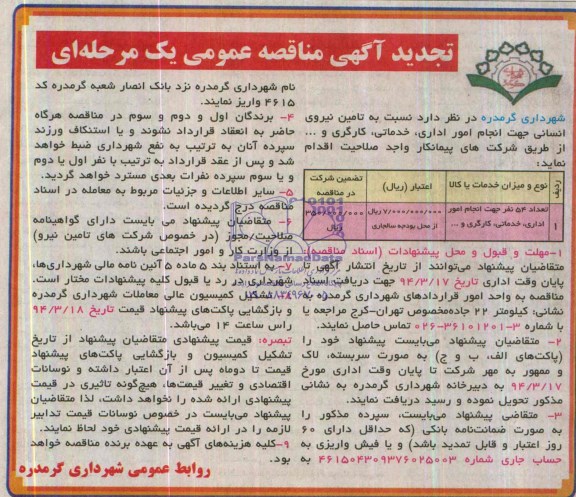 تجدید آگهی مناقصه عمومی یک مرحله‌ای
شهرداری گرمدره در نظر دارد نسبت به تامین نیروی
انسانی جهت انجام امور اداری، خدماتی، کارگری و ...
از طریق شرکت های پیمانکار واجد صلاحیت اقدام
نماید:
ردیف
نوع و میزان خدمات یا کالا
اعتبار (ریال)
تضمین شرکت
در مناقصه
۱
تعداد ۵۴ نفر جهت انجام امور
اداری، خدماتی، کارگری و ...
۷/۰۰۰/۰۰۰/۰۰۰ ریال
از محل بودجه سالجاری
ریال
۱-مهلت و قبول و محل پیشنهادات (اسناد مناقصه):
متقاضیان پیشنهاد می‌توانند از تاریخ انتشار آگهی تا
پایان وقت اداری تاریخ ۹۴/۳/۱۷ جهت دریافت اسناد
مناقصه به واحد امور قراردادهای شهرداری گرمدره به
نشانی: کیلومتر ۲۲ جاده‌مخصوص تهران-کرج مراجعه یا
با شماره ۳-۳۶۱۰۱۲۰۱-۰۲۶ تماس حاصل نمایند.
۲- متقاضیان پیشنهاد می‌بایست پیشنهاد خود را
(پاکت‌های الف، ب و ج) به صورت سربسته، لاک
و ممهور به مهر شرکت تا پایان وقت اداری مورخ
۹۴/۳/۱۷ به دبیرخانه شهرداری گرمدره به نشانی
مذکور تحویل نموده و رسید دریافت نمایند.
۳- متقاضی پیشنهاد می‌بایست، سپرده مذکور را
به صورت ضمانت‌نامه بانکی (که حداقل دارای ۶۰
روز اعتبار و قابل تمدید باشد) و یا فیش واریزی به
حساب جاری شماره ۴۶۱۵۰۴۳۰۹۳۷۶۰۲۵۰۰۳ به
نام شهرداری گرمدره نزد بانک انصار شعبه گرمدره کد
۴۶۱۵ واریز نمایند.
۴- برندگان اول و دوم و سوم در مناقصه هرگاه
حاضر به انعقاد قرارداد نشوند و یا استنکاف ورزند
سپرده آنان به ترتیب به نفع شهرداری ضبط خواهد
شد و پس از عقد قرارداد به ترتیب با نفر اول یا دوم
و یا سوم سپرده نفرات بعدی مسترد خواهد گردید.
۵- سایر اطلاعات و جزئیات مربوط به معامله در اسناد
مناقصه درج گردیده است.
۶- متقاضیان پیشنهاد می بایست دارای گواهینامه
صلاحیت/مجوز (در خصوص شرکت های تامین نیرو)
از وزارت کار و امور اجتماعی باشند.
۷- به استناد بند ۵ ماده ۵ آئین نامه مالی شهرداری‌ها،
شهرداری در رد یا قبول کلیه پیشنهادات مختار است.
۸- تشکیل کمیسیون عالی معاملات شهرداری گرمدره
و بازگشایی پاکت‌های پیشنهاد قیمت تاریخ ۹۴/۳/۱۸
راس ساعت ۱۴ می‌باشد.
تبصره: قیمت پیشنهادی متقاضیان پیشنهاد از تاریخ
تشکیل کمیسیون و بازگشایی پاکت‌های پیشنهاد
قیمت تا دوماه پس از آن اعتبار داشته و نوسانات
اقتصادی و تغییر قیمت‌ها، هیچ‌گونه تاثیری در قیمت
پیشنهادی ارائه شده را نخواهد داشت، لذا متقاضیان
پیشنهاد می‌بایست در خصوص نوسانات قیمت تدابیر
لازمه را در ارائه قیمت پیشنهادی خود لحاظ نمایند.
۹-کلیه هزینه‌های آگهی به عهده برنده مناقصه خواهد
بود.
روابط عمومی شهرداری گرمدره
ParsNamadData